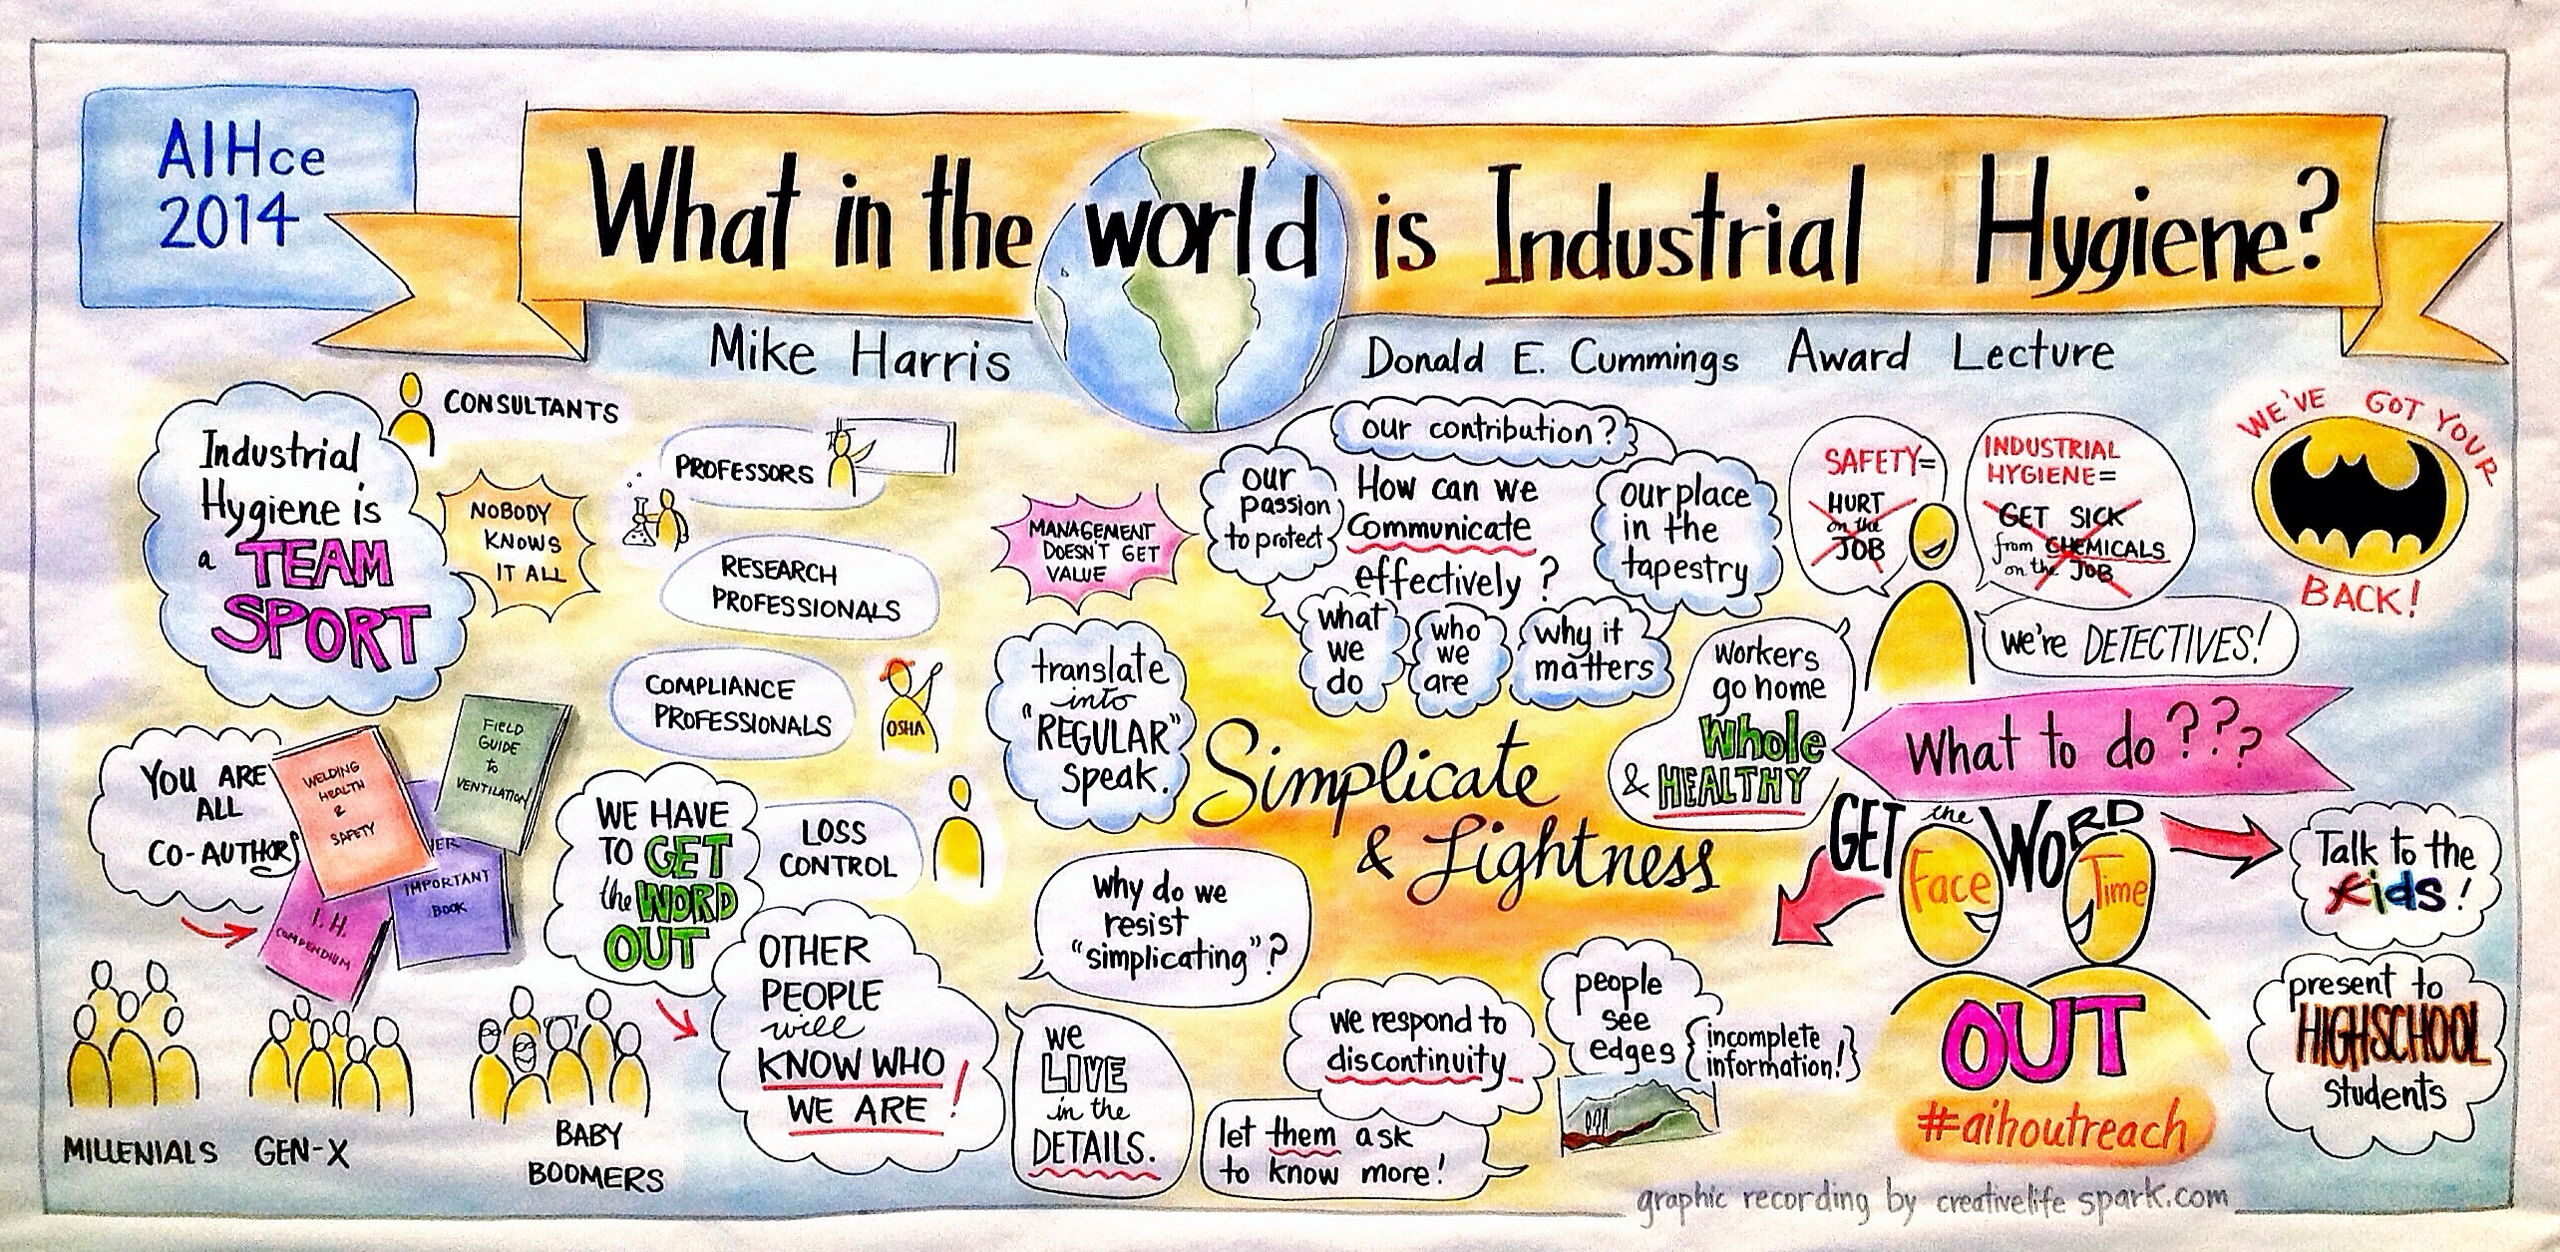 AIHce
2014
What in the world is Industrial Hygiene?
Mike Harris
Donald E. Cummings Award Lecture
Industrial
Hygiene is
a TEAM
SPORT
CONSULTANTS
NOBODY
KNOWS
IT ALL
PROFESSORS
RESEARCH
PROFESSIONALS
COMPLIANCE
PROFESSIONALS
OSHA
YOU ARE
ALL
CO-AUTHORS
WELDING
HEALTH
&
SAFETY
FIELD
GUIDE
to
VENTILATION
IMPORTANT
BOOK
I.H.
COMPENDIUM
WE HAVE
TO GET
the WORD
OUT
LOSS
CONTROL
OTHER
PEOPLE
will
KNOW WHO
WE ARE!
MILLENIALS
GEN-X
BABY
BOOMERS
MANAGEMENT
DOESN'T GET
VALUE
translate
into
"REGULAR"
speak.
our contribution?
our
passion
to protect
How can we
Communicate
effectively?
our place
in the
tapestry
what
we
do
who
we
are
why it
matters
Simplicate
& Lightness
Why do we
resist
"simplicating"?
we
LIVE
in the
DETAILS.
we respond to
discontinuity
let them ask
to know more!
people
see
edges
{incomplete
information!}
SAFETY=
HURT
on the
JOB
INDUSTRIAL
HYGIENE=
GET SICK
from CHEMICALS
on the JOB
WE'VE GOT YOUR
BACK!
we're DETECTIVES!
Workers
go home
Whole
& HEALTHY
What to do???
GET the WORD
Face Time
OUT
#aihoutreach
Talk to the
kids!
present to
HIGHSCHOOL
students
graphic recording by creativelife spark.com